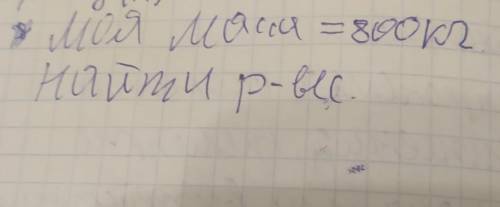 моя масса = 800 кг
найти p-вес.